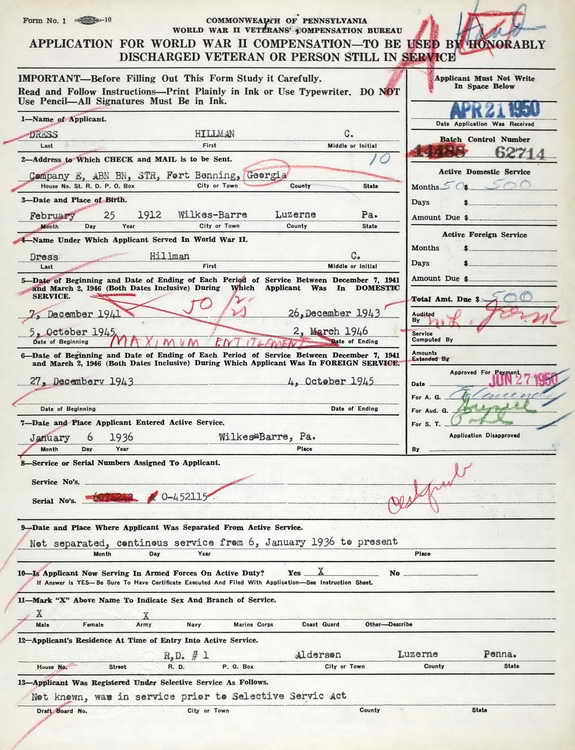 Form No. 1
COMMONWEALTH OF PENNSYLVANIA
WORLD WAR II VETERANS' COMPENSATION BUREAU
APPLICATION FOR WORLD WAR II COMPENSATION—TO BE USED BY HONORABLY
DISCHARGED VETERAN OR PERSON STILL IN SERVICE
IMPORTANT—Before Filling Out This Form Study it Carefully.
Read and Follow Instructions—Print Plainly in Ink or Use Typewriter. DO NOT
Use Pencil—All Signatures Must Be in Ink.
Applicant Must Not Write
In Space Below
APR 21 1950
Date Application Was Received
Batch Control Number
14488 62714
1—Name of Applicant.
DRESS HILLMAN C.
Last First Middle or Initial
2—Address to Which CHECK and MAIL is to be Sent.
10
Company E, ABN BN, STR, Fort Benning, Georgia
House No. St. R. D. P. O. Box City or Town County State
3—Date and Place of Birth.
February 25 1912 Wilkes-Barre Luzerne Pa.
Month Day Year City or Town County State
4—Name Under Which Applicant Served In World War II.
Dress Hillman C.
Last First Middle or Initial
5—Date of Beginning and Date of Ending of Each Period of Service Between December 7, 1941
and March 2, 1946 (Both Dates Inclusive) During Which Applicant Was In DOMESTIC
SERVICE.
50
7, December 1941 26,December 1943
5, October 1945 2, March 1946
MAXIMUM ENTITLEMENT
Date of Beginning Date of Ending
6—Date of Beginning and Date of Ending of Each Period of Service Between December 7, 1941
and March 2, 1946 (Both Dates Inclusive) During Which Applicant Was In FOREIGN SERVICE.
27, Decemberv 1943 4, October 1945
Date of Beginning Date of Ending
7—Date and Place Applicant Entered Active Service.
January 6 1936 Wilkes-Barre, Pa.
Month Day Year Place
Active Domestic Service
Months 50 $ 500
Days $
Amount Due $
Active Foreign Service
Months $
Days $
Amount Due $
Total Amt. Due $ 500
Audited
By
Service
Computed By
Amounts
Extended By
Approved For Payment
Date JUN 27 1950
For A. G.
For Aud. G.
For S. T.
Application Disapproved
By
8—Service or Serial Numbers Assigned To Applicant.
Service No's.
Serial No's. O-452115
9—Date and Place Where Applicant Was Separated From Active Service.
Not separated, continous service from 6, January 1936 to present
Month Day Year Place
10—Is Applicant Now Serving In Armed Forces On Active Duty? Yes X No
If Answer is YES—Be Sure To Have Certificate Executed And Filed With Application—See Instruction Sheet.
11—Mark "X" Above Name To Indicate Sex And Branch of Service.
X X
Male Female Army Navy Marine Corps Coast Guard Other—Describe
12—Applicant's Residence At Time of Entry Into Active Service.
R,D. # 1 Alderson Luzerne Penna.
House No. Street R. D. P. O. Box City or Town County State
13—Applicant Was Registered Under Selective Service As Follows.
Not known, was in service prior to Selective Servic Act
Draft Board No. City or Town County State